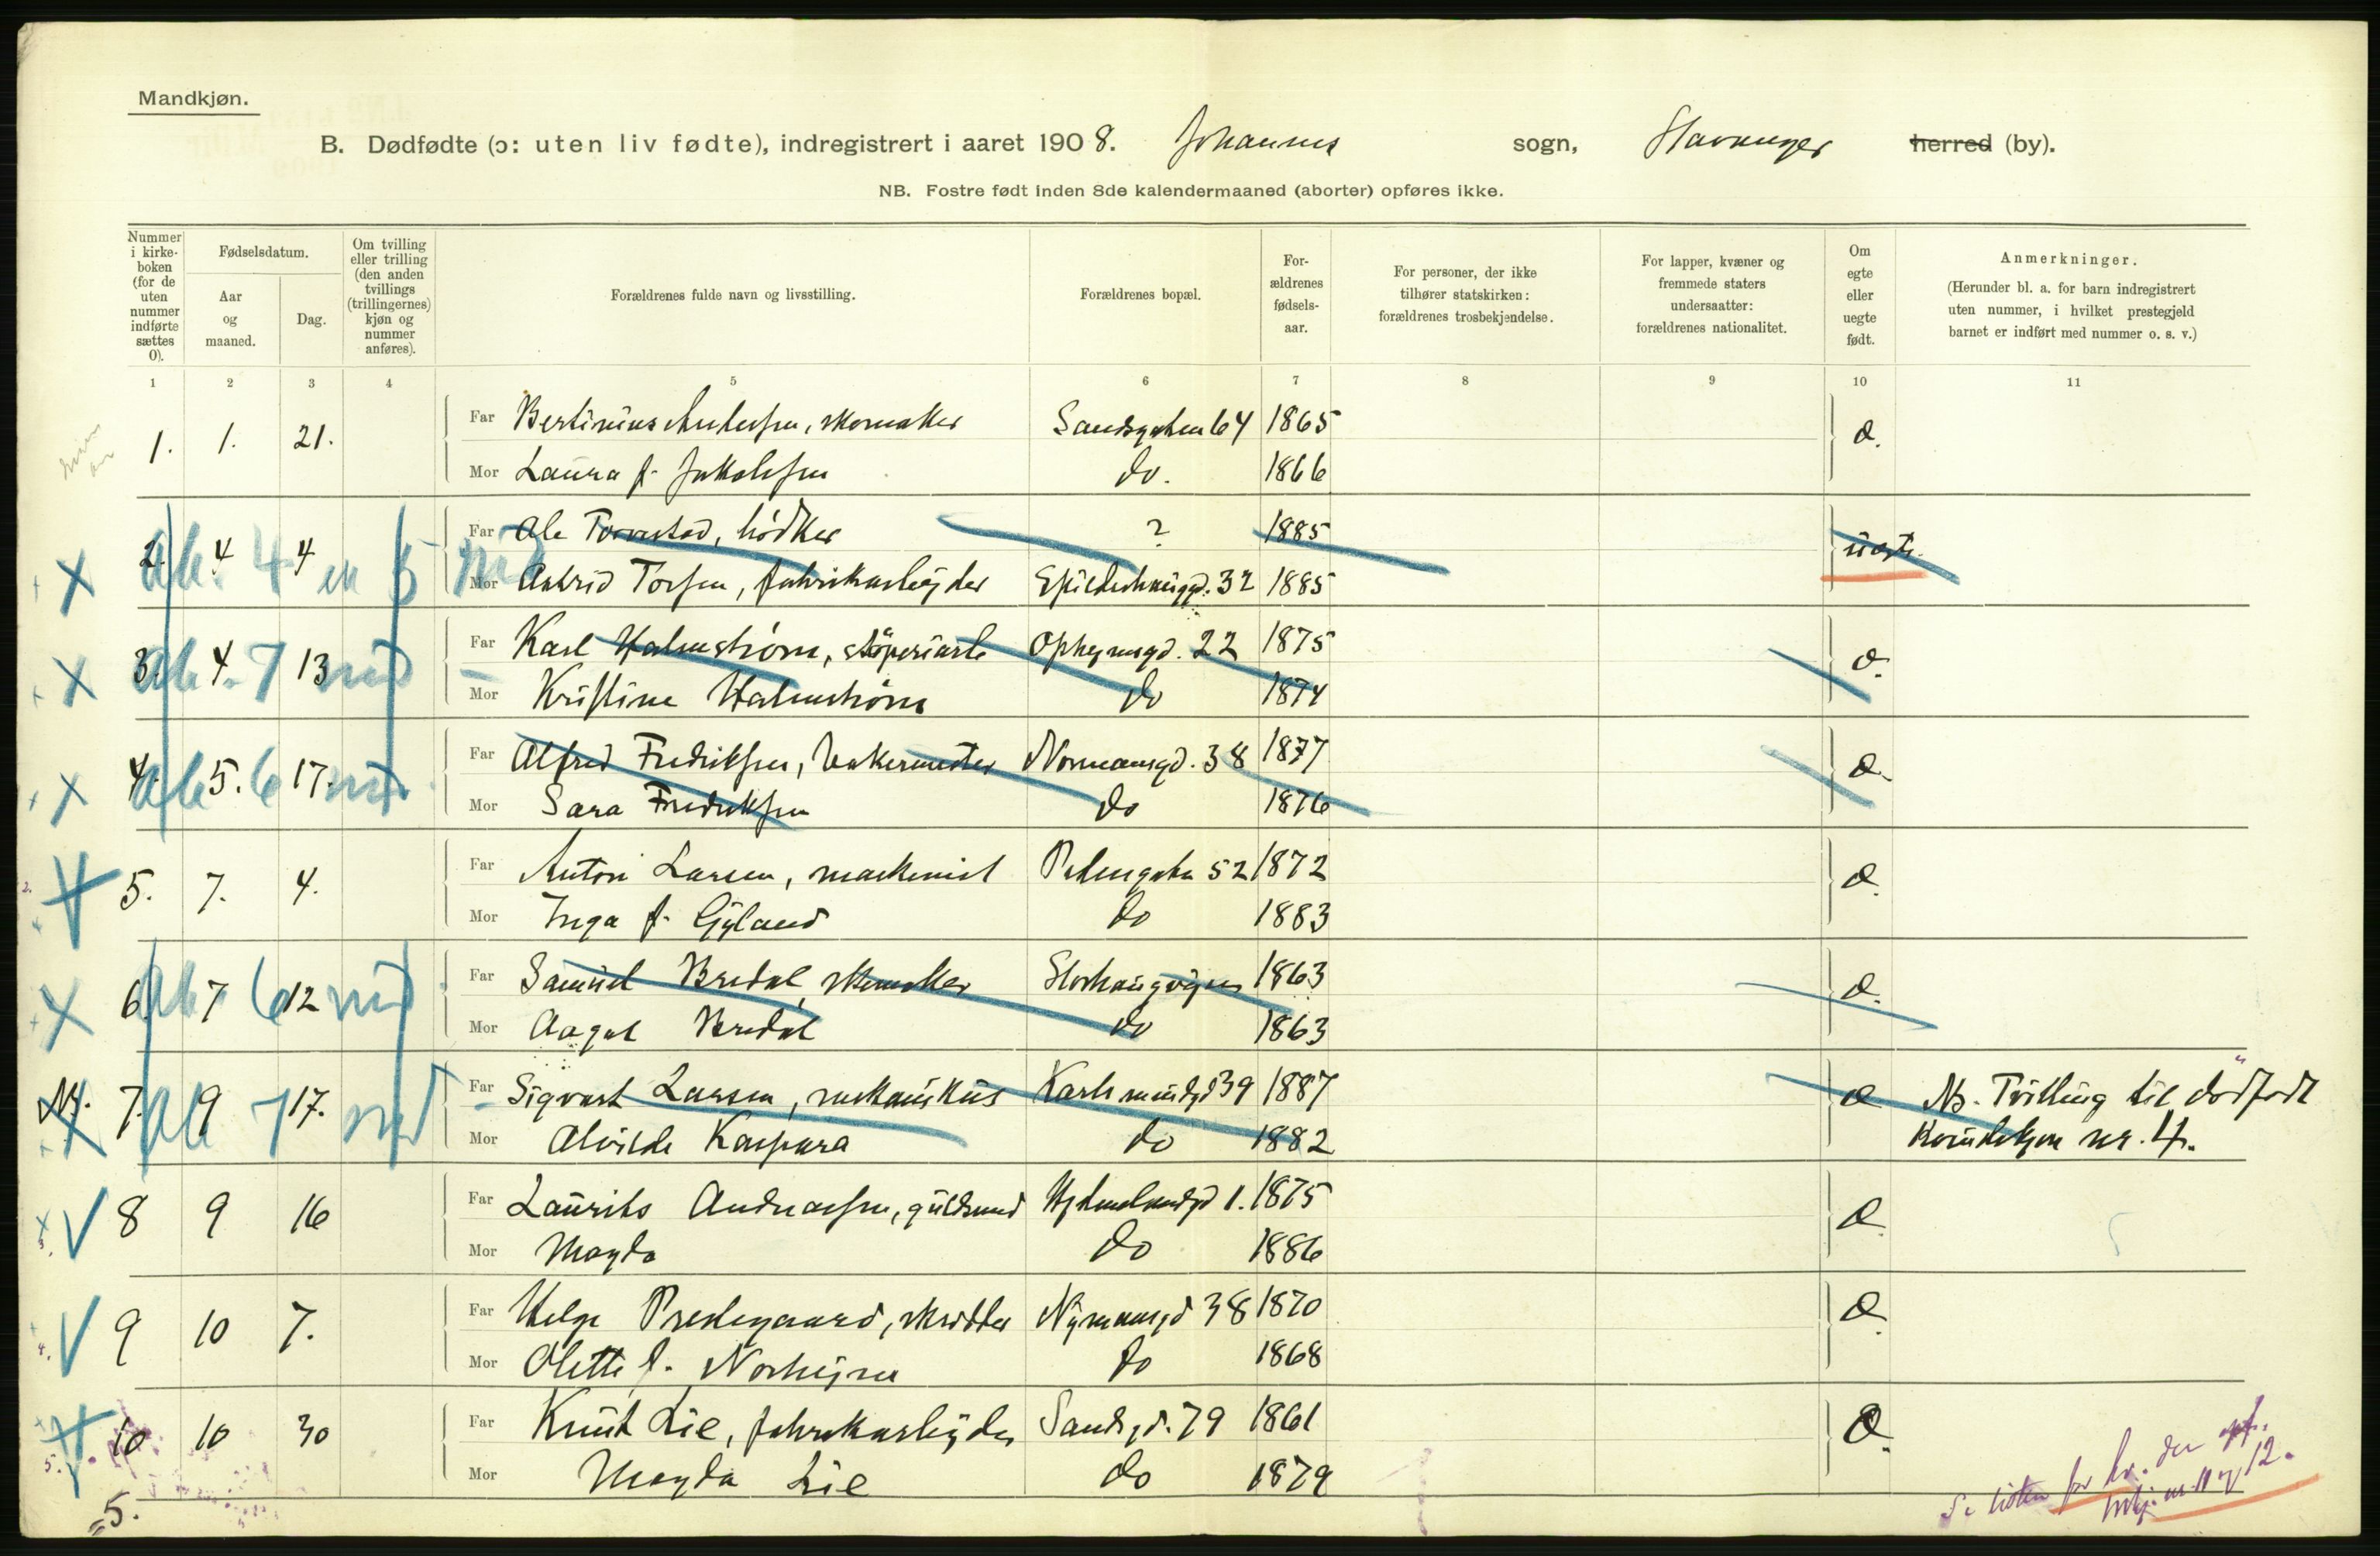 Mandkjøn.
B. Dødfødte (ɔ: uten liv fødte), indregistrert i aaret 1908. Johannes sogn, Stavanger herred (by).
NB. Fostre født inden 8de kalendermaaned (aborter) opføres ikke.
Nummer i kirke-boken (for de uten nummer indførte sættes 0).
Fødselsdatum.
Aar og maaned.
Dag.
Om tvilling eller trilling (den anden tvillings (trillingernes) kjøn og nummer anføres).
Forældrenes fulde navn og livsstilling.
Forældrenes bopæl.
For-ældrenes fødsels-aar.
For personer, der ikke tilhører statskirken: forældrenes trosbekjendelse.
For lapper, kvæner og fremmede staters undersaatter: forældrenes nationalitet.
Om egte eller uegte født.
Anmerkninger.
(Herunder bl. a. for barn indregistrert uten nummer, i hvilket prestegjeld barnet er indført med nummer o. s. v.)
1 2 3 4 5 6 7 8 9 10 11
1. 1. 21. Far Bertinius Andersen, skomaker Sandsgaten 64 1865 Æ.
Mor Laura f. Jakobsen do. 1866
2. 4 4 Far Ole Torvestad, bødker ? 1885 uegte.
Mor Astrid Torsen, fabrikarbeider 32 1885
3. 4. 13 Far Karl Halmstrøm, støperiarb Ophejmsgd. 22 1875 Æ.
Mor Kristine Halmstrøm do 1874
4. 5. 17. Far Alfred Fredriksen, bakermester Normansgd. 38 1877 Æ.
Mor Sara Fredriksen do 1876
5. 7. 4. Far Anton Larsen, maskinist Pedersgaten 52 1872 Æ.
Mor Inga f. Gyland do 1883
6. 7 12 Far Samuel Bredal, skomaker Storhaugveien 1863 Æ.
Mor Aagot Bredal do 1863
7. 9 17. Far Sigvart Larsen, mekanikus Karlsmindgd 39 1887 Æ Nb. Tvilling til dødfødt
Mor Alvilde Kaspara do 1882 Kvindekjøn nr. 4.
8 9 16 Far Laurits Andreassen, guldsmed 1. 1875 Æ
Mor Magda do 1886
9 10 7. Far Helge Prestegaard, skrædder Nymansgd 38 1870 Æ.
Mor Olette f. Norheim do 1868
10 10 30 Far Knut Lie, fabrikarbeider Sandsgd. 79 1861 Æ.
Mor Magda Lie do 1879
Se listen for kv. der opf.
mkj. nr. 11 og 12.
5.